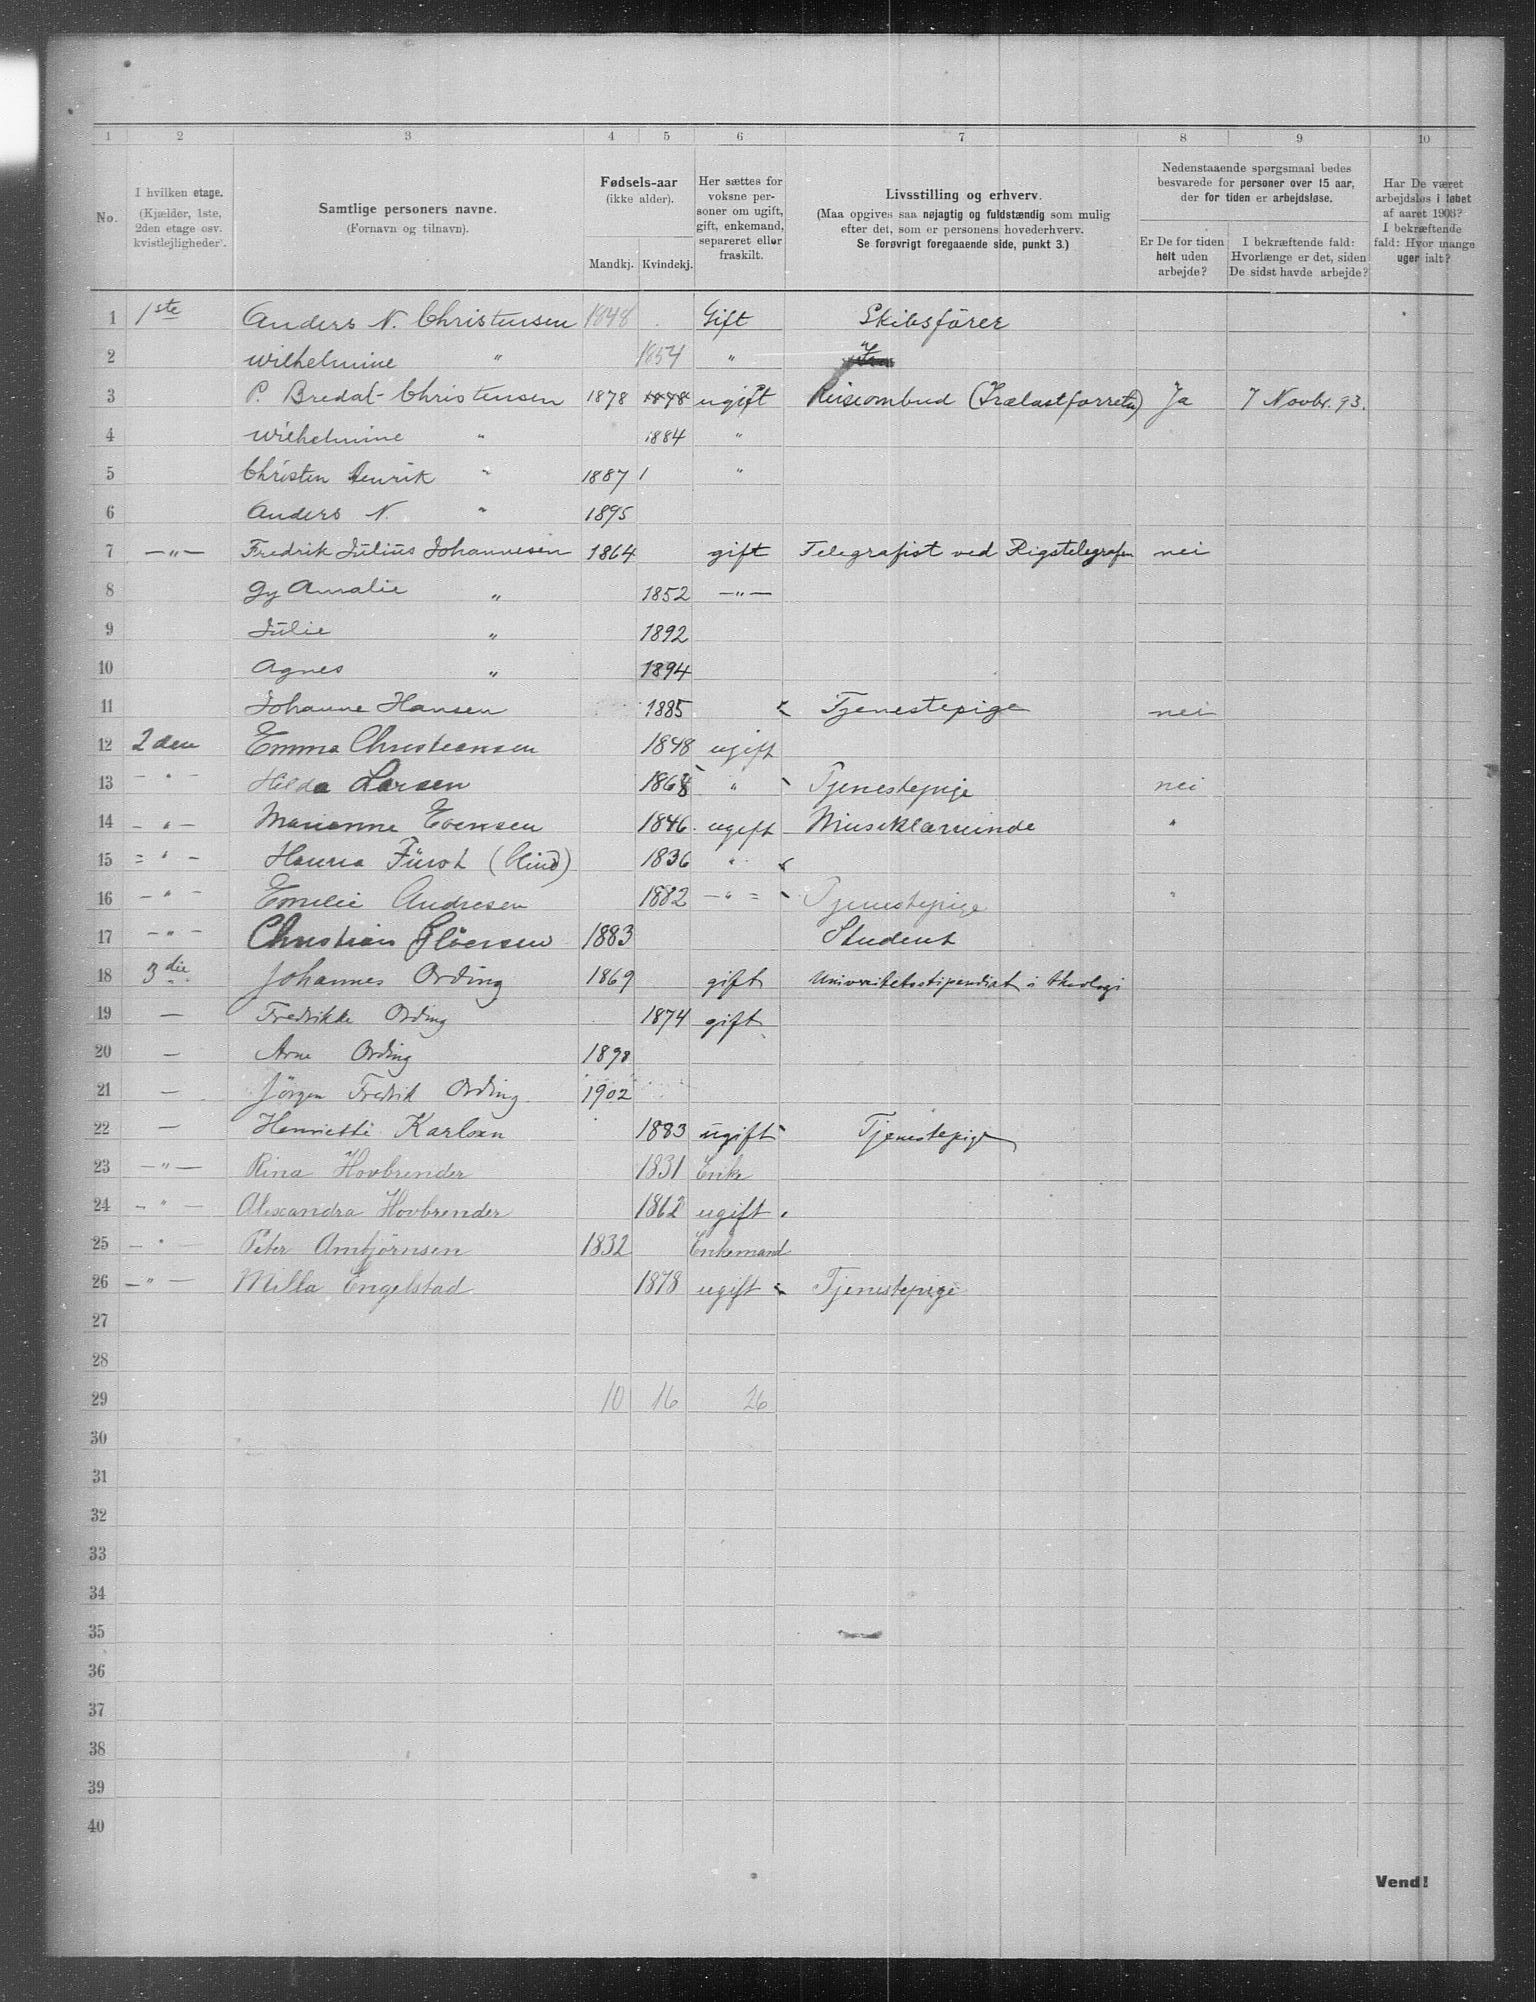 1 2 3 4 5 6 7 8 9 10
No.
I hvilken etage.
(Kjælder, 1ste,
2den etage osv.
kvistlejligheder).
Samtlige personers navne.
(Fornavn og tilnavn).
Fødsels-aar
(ikke alder).
Mandkj. Kvindekj.
Her sættes for
voksne per-
soner om ugift,
gift, enkemand,
separeret eller
fraskilt.
Livsstilling og erhverv.
(Maa opgives saa nøjagtig og fuldstændig som mulig
efter det, som er personens hovederhverv.
Se forøvrigt foregaaende side, punkt 3.)
Nedenstaaende spørgsmaal bedes
besvarede for personer over 15 aar,
der for tiden er arbejdsløse.
Er De for tiden
helt uden
arbejde?
I bekræftende fald:
Hvorlænge er det, siden
De sidst havde arbejde?
Har De været
arbejdsløs i løbet
af aaret 1903?
I bekræftende
fald: Hvor mange
uger ialt?
1 1ste Anders N. Christensen 1848 Gift Skibsfører
2 Wilhelmine " 1854 "
3 P. Bredal-Christensen 1878 1878 ugift Reiseombud (Trælastforretn) Ja 7 Novbr. 93.
4 Wilhelmine " 1884 "
5 Christen Henrik " 1887 1 "
6 Anders N. " 1895
7 —"— Fredrik Julius Johannesen 1864 gift Telegrafist ved Rigstelegrafen nei
8 Gy Amalie " 1852 —"—
9 Julie " 1892
10 Agnes " 1894
11 Johanne Hansen 1885 Tjenestepige nei
12 2den Emma Christensen 1848 ugift
13 —"— Hilda Larsen 1868 " Tjenestepige nei
14 —"— Marianne Evensen 1846 ugift Musiklærerinde "
15 —"— Hanna Fürst (blind) 1836 "
16 —"— Emilie Andresen 1882 —"— Tjenestepige "
17 —"— Christian Gløersen 1883 Student
18 3die Johannes Ording 1869 gift Universitetsstipendiat i theologi
19 — Fredrikke Ording 1874 gift
20 — Arne Ording 1898
21 — Jørgen Fredrik Ording 1902
22 — Henriette Karlsen 1883 ugift Tjenestepige
23 —"— Rina Hovbrender 1831 Enke
24 —"— Alexandra Hovbrender 1862 ugift
25 —"— Peter Ambjørnsen 1832 Enkemand
26 —"— Milla Engelstad 1878 ugift Tjenestepige
27
28
29 10 16 26
30
31
32
33
34
35
36
37
38
39
40
Vend!